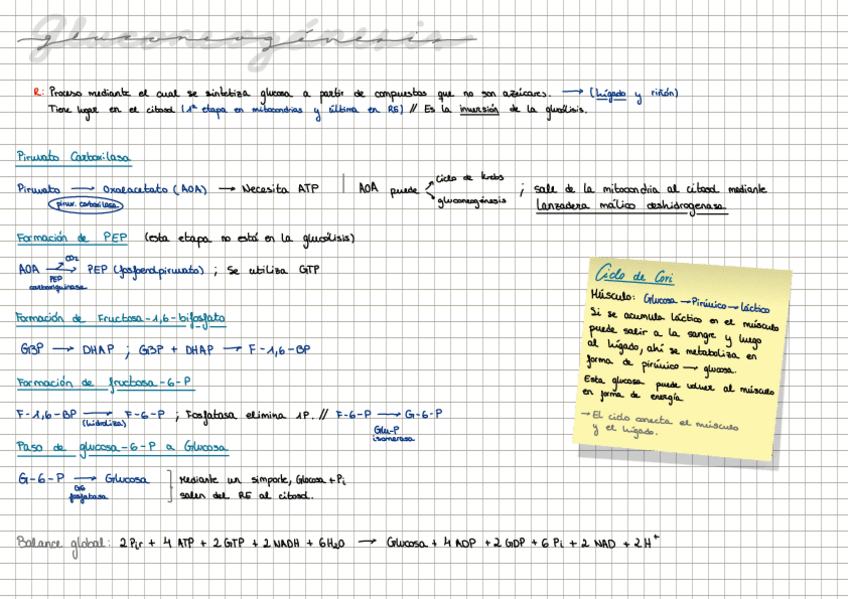 Gluconeogénesis
R: Proceso mediante el cual se sintetiza glucosa a partir de compuestos que no son azúcares. → (hígado y riñón)
Tiene lugar en el citosol (1ª etapa en mitocondrias y última en RE) // Es la inversión de la glucólisis.
Piruvato Carboxilasa
Piruvato → Oxalacetato (AOA) → Necesita ATP | AOA puede
piruv. carboxilasa
Ciclo de krebs
gluconeogénesis
; sale de la mitocondria al citosol mediante
lanzadera málico deshidrogenasa.
Formación de PEP (esta etapa no está en la glucólisis)
AOA → PEP (fosfoenolpiruvato) ; Se utiliza GTP
CO2
PEP
carboxiquinasa
Formación de Fructosa-1,6-bifosfato
G3P → DHAP ; G3P + DHAP → F-1,6-BP
Formación de fructosa-6-P
F-1,6-BP → F-6-P ; Fosfatasa elimina 1P. // F-6-P → G-6-P
(hidroliza)
Glu-P
isomerasa
Paso de glucosa-6-P a Glucosa
G-6-P → Glucosa
G6
fosfatasa
Mediante un simporte, Glucosa + Pi
salen del RE al citosol.
Ciclo de Cori
Músculo: Glucosa → Pirúvico → láctico
Si se acumula láctico en el músculo
puede salir a la sangre y luego
al hígado, ahí se metaboliza en
forma de pirúvico → glucosa.
Esta glucosa puede volver al músculo
en forma de energía
→ El ciclo conecta el músculo
y el hígado.
Balance global: 2 Pir + 4 ATP + 2 GTP + 2 NADH + 6H2O → Glucosa + 4 ADP + 2 GDP + 6 Pi + 2 NAD + 2 H+